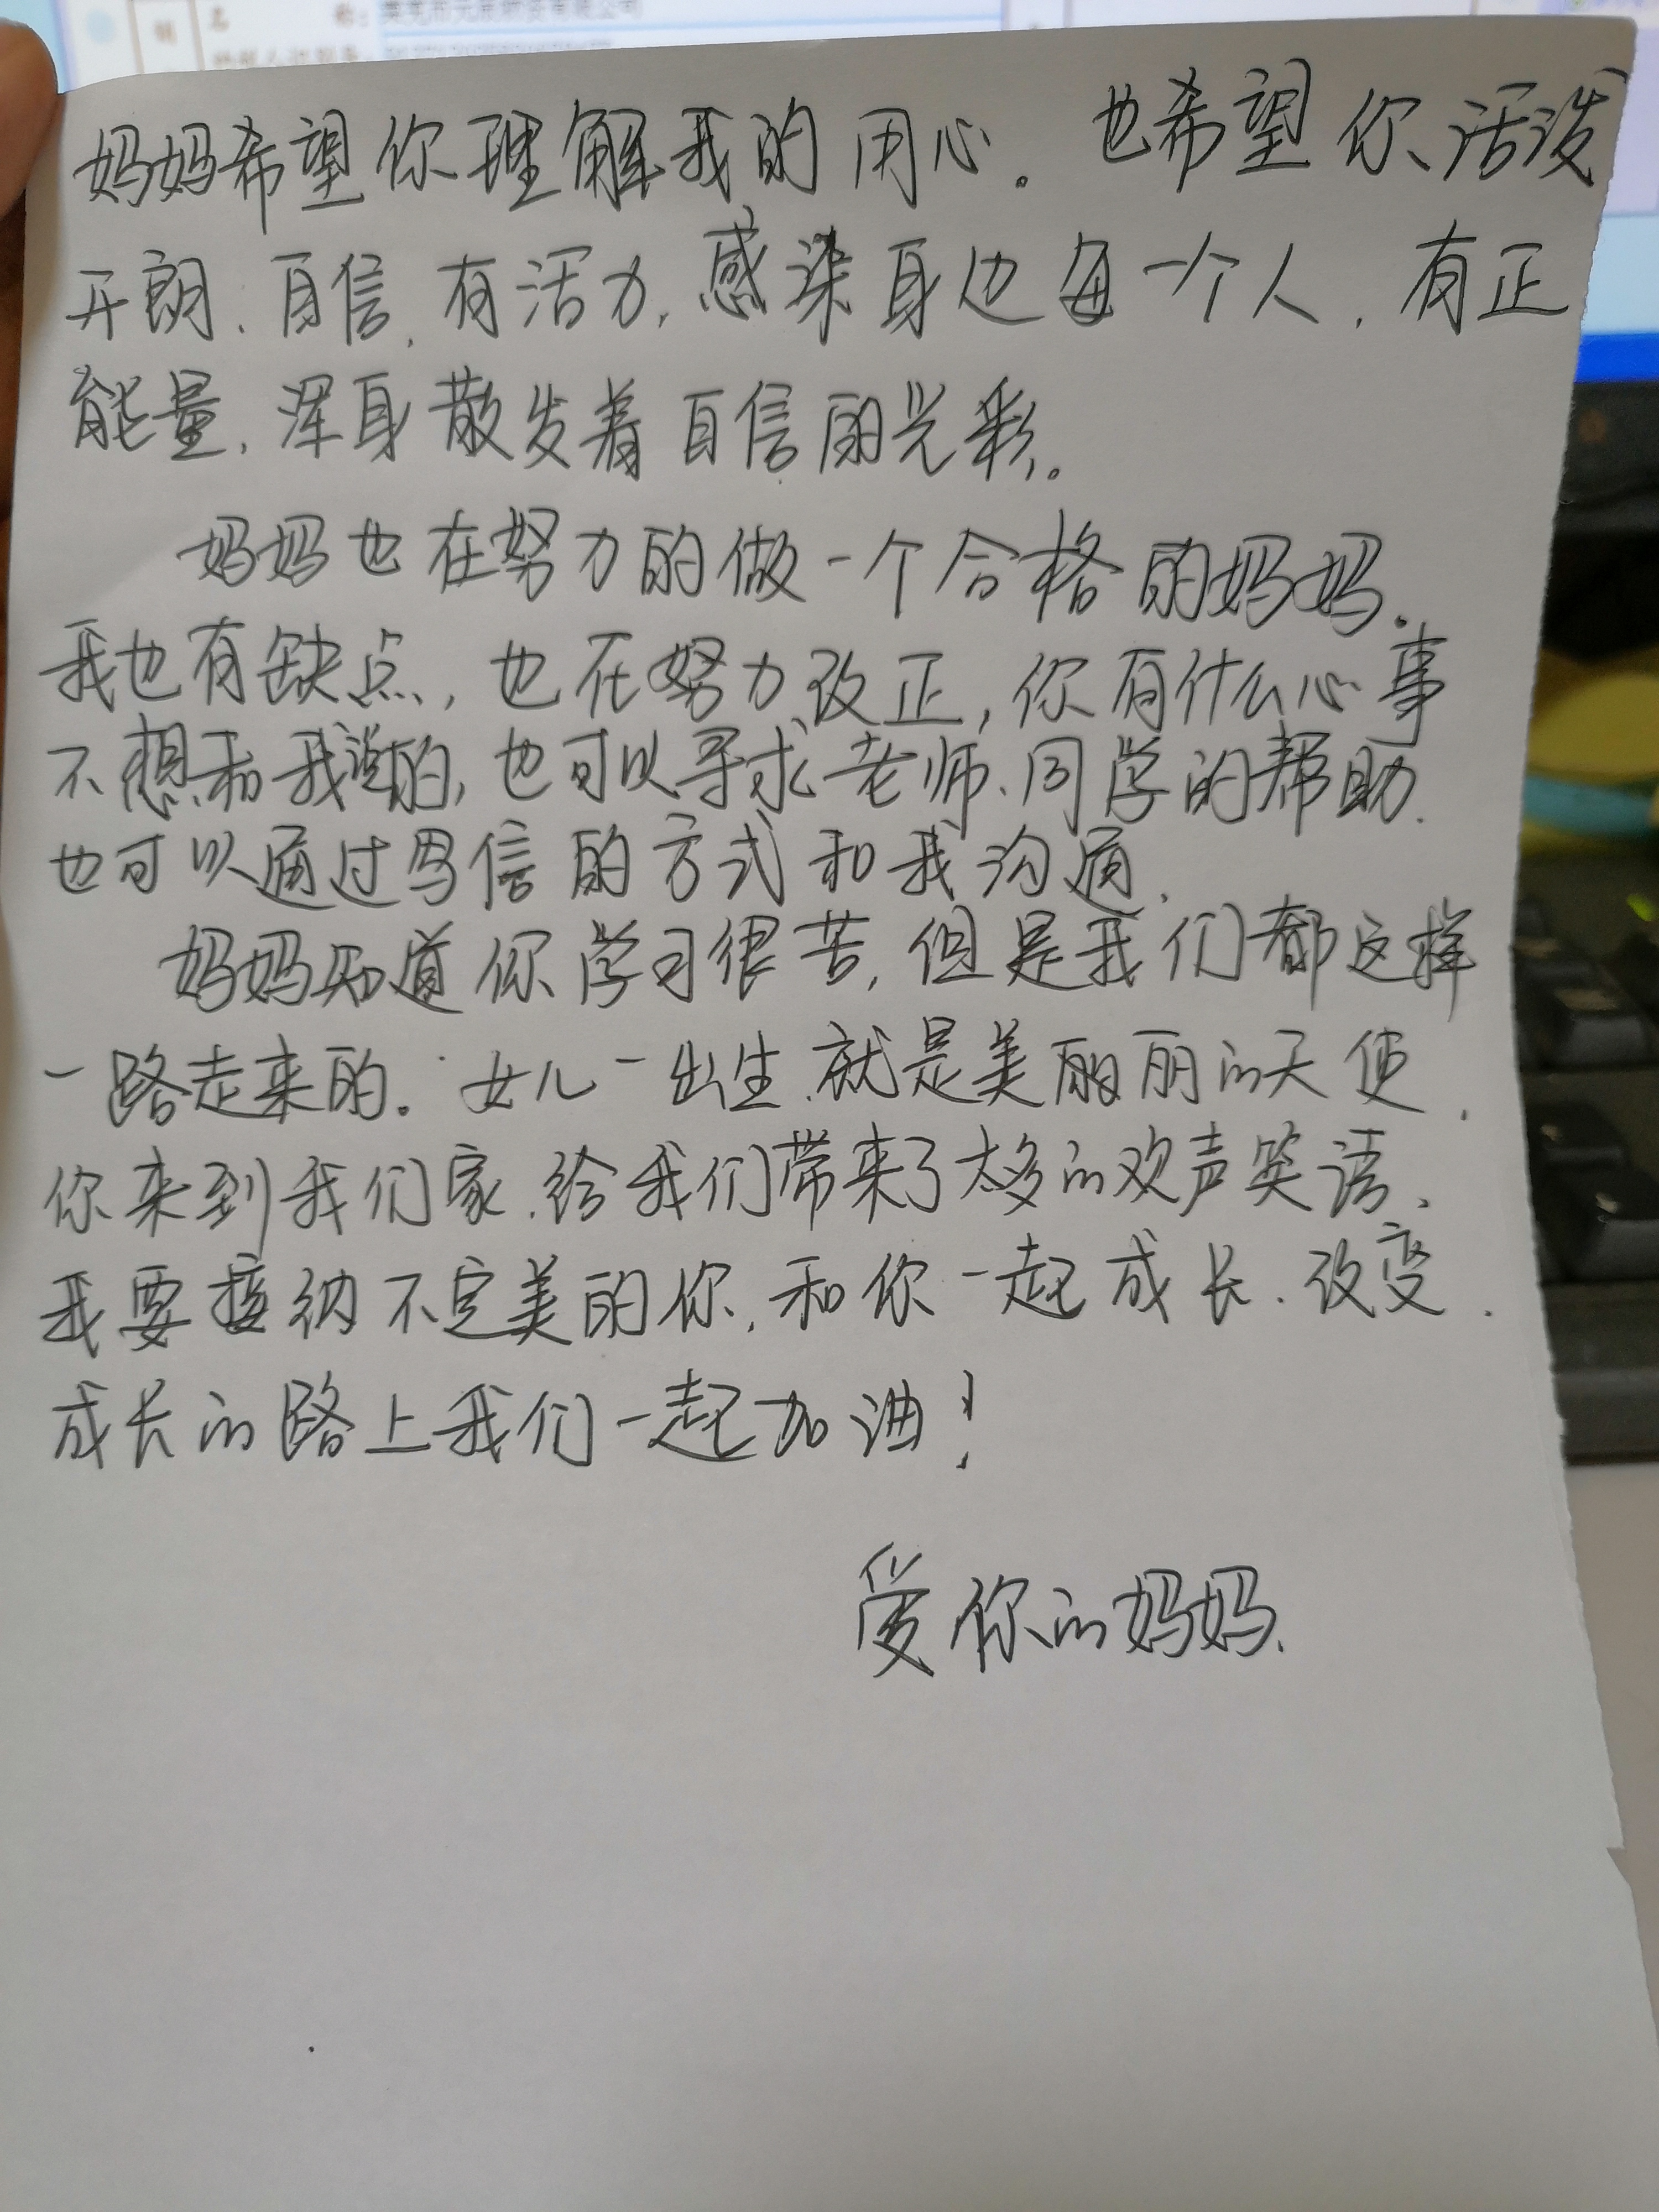 妈妈希望你理解我的用心。也希望你活泼
开朗、自信、有活力,感染身边每一个人,有正
能量,浑身散发着自信的光彩。
妈妈也在努力的做一个合格的妈妈。
我也有缺点,也在努力改正,你有什么心事
不想和我说的,也可以寻求老师、同学的帮助.
也可以通过写信的方式和我沟通.
妈妈知道你学习很苦,但是我们都这样
一路走来的。女儿一出生,就是美丽的天使.
你来到我们家,给我们带来了太多的欢声笑语.
我要接纳不完美的你,和你一起成长、改变.
成长的路上我们一起加油!
爱你的妈妈.